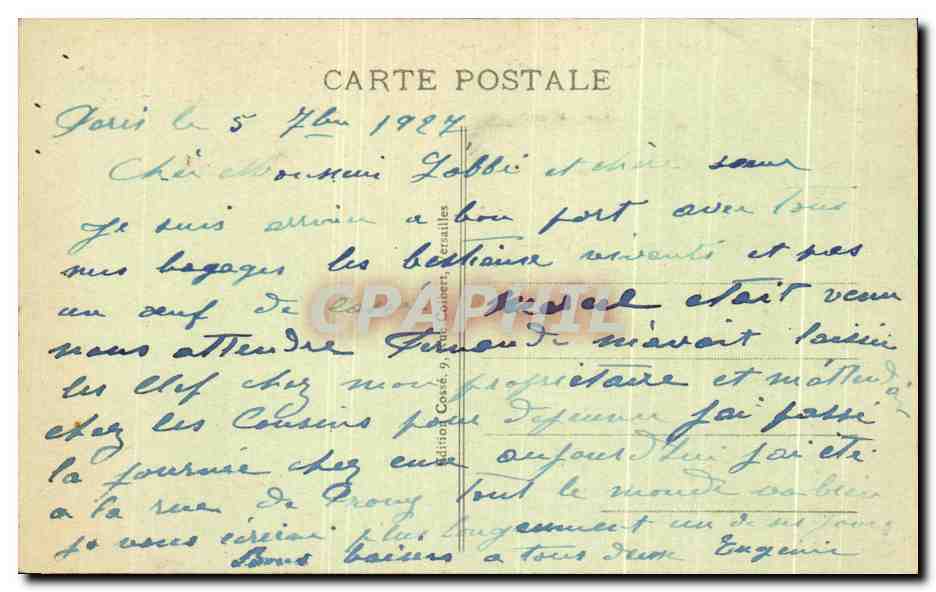 CARTE POSTALE
Paris le 5 7bre 1927
Cher Monsieur l'abbé et chère sœur
Je suis arrivée a bon port avec tous
mes bagages les bestiause vivants et pas
un œuf de était venu
nous attendre Fernande m'avait laissér
les Clef chez mon propriétaire et m'attend
chez les Cousins pour déjeuner j'ai passé
la journée chez eux aujourd'hui j'ai été
a la rue de Prony tout le monde va bien
je vous écrirai plus longuement un de ses jours
Bons baisers a tous deux Eugénie
Edition Cossé, 9, rue Colbert, Versailles
CPAPHIL